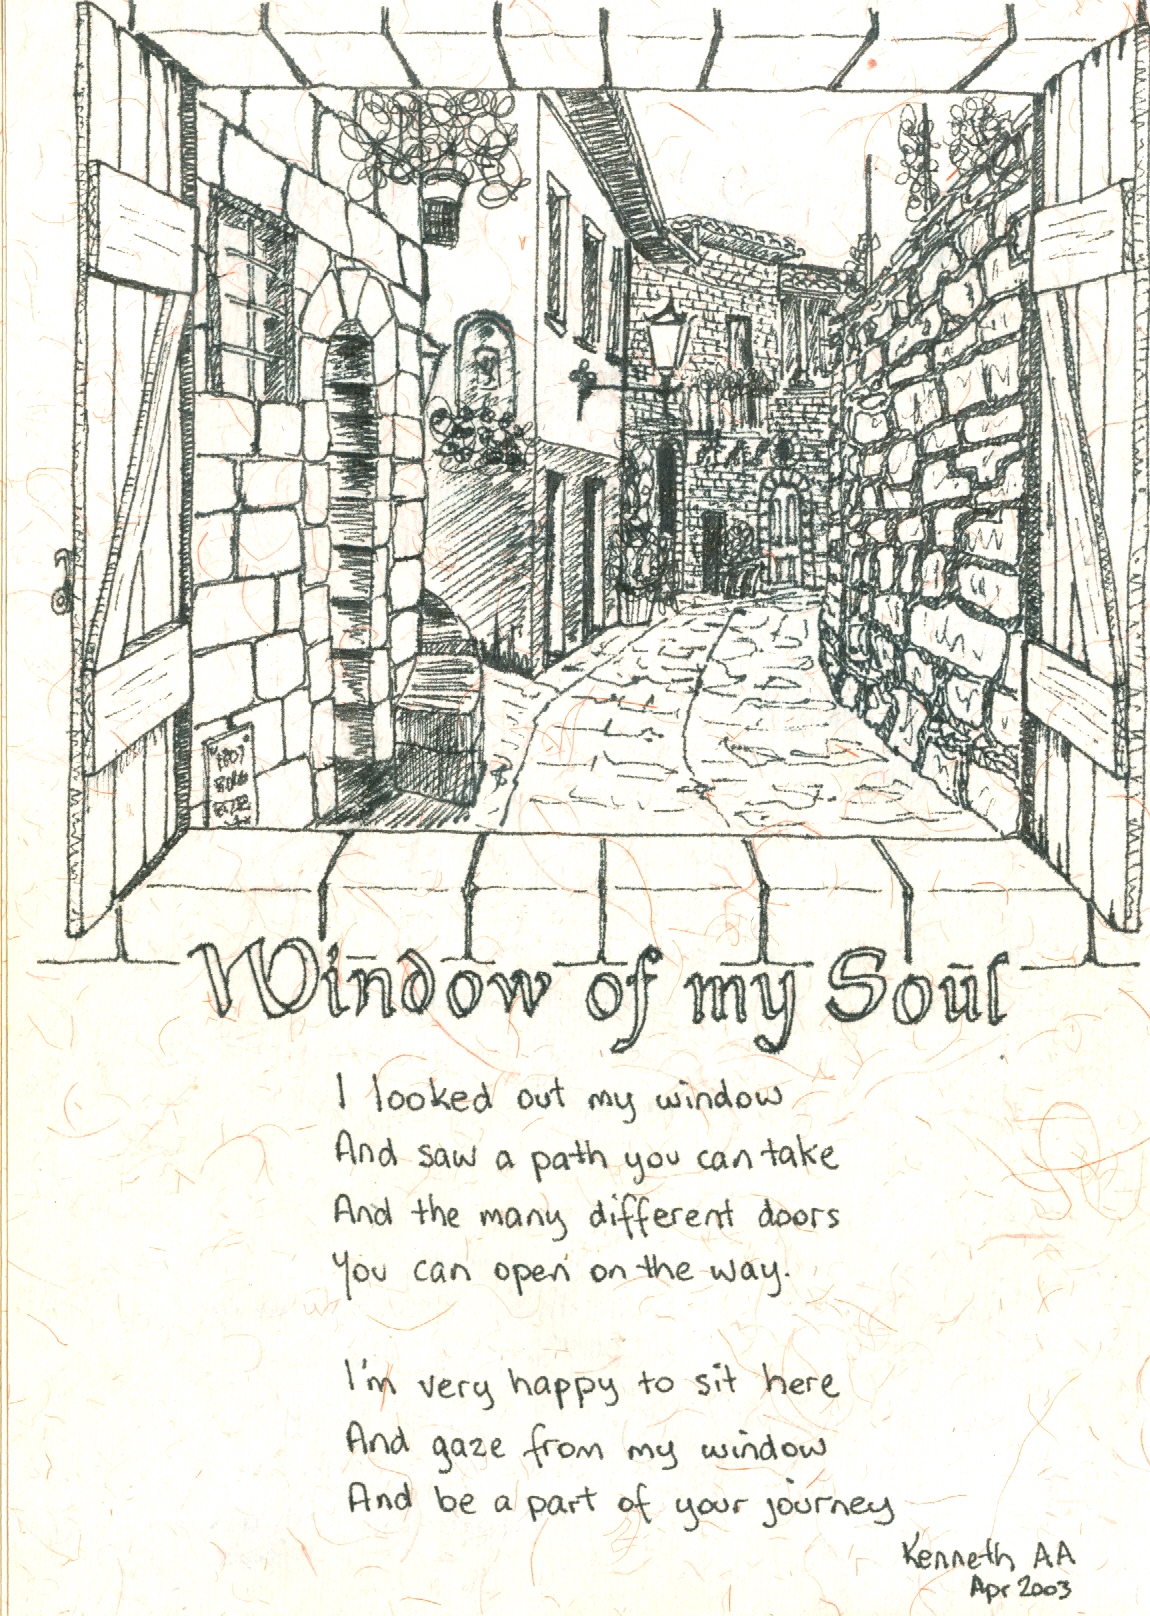 Window of my Soul
I looked out my window
And saw a path you can take
And the many different doors
You can open on the way.
I'm very happy to sit here
And gaze from my window
And be a part of your journey
Kenneth AA
Apr 2003